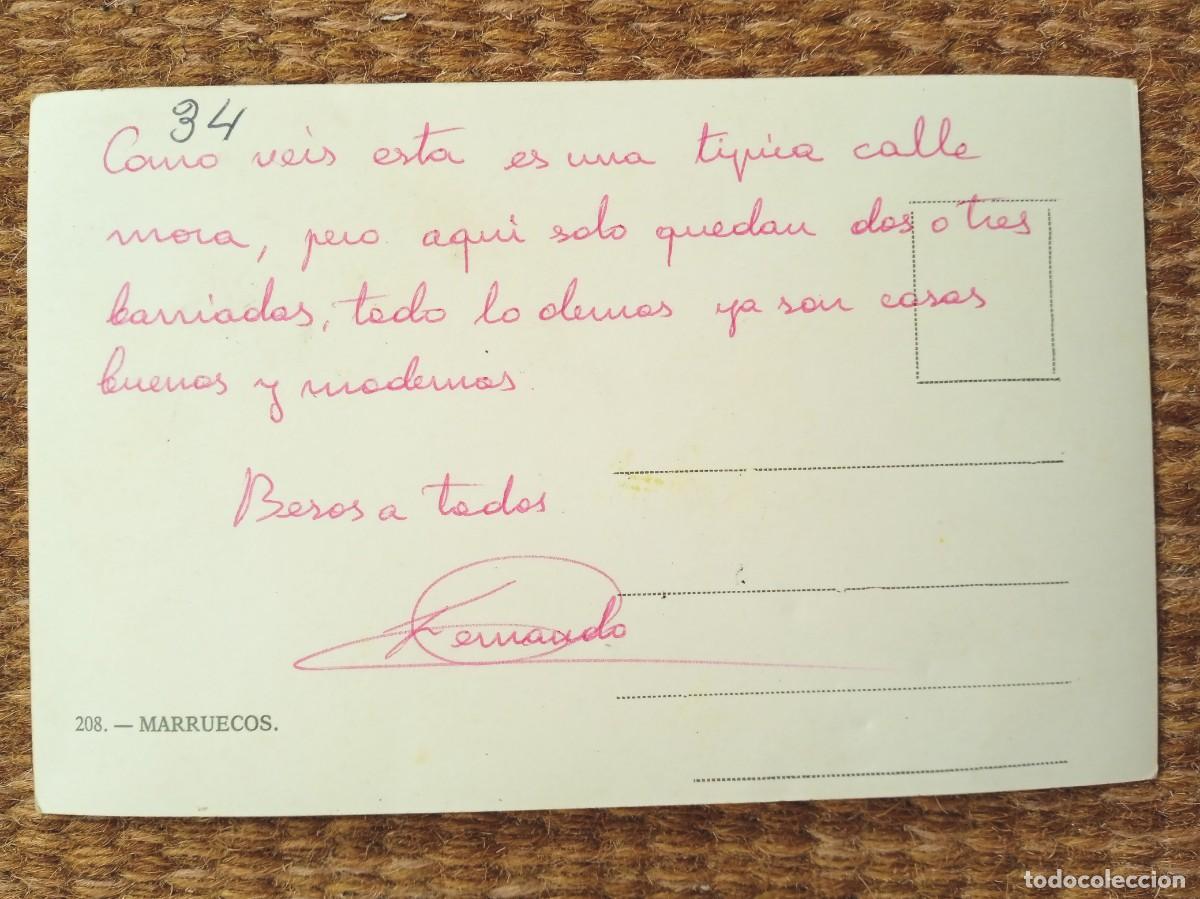 34
Como veis esta es una tipica calle
mora, pero aqui solo quedan dos o tres
barriadas, todo lo demas ya son casas
buenas y modernas.
Besos a todos
Fernando
208. — MARRUECOS.
todocoleccion